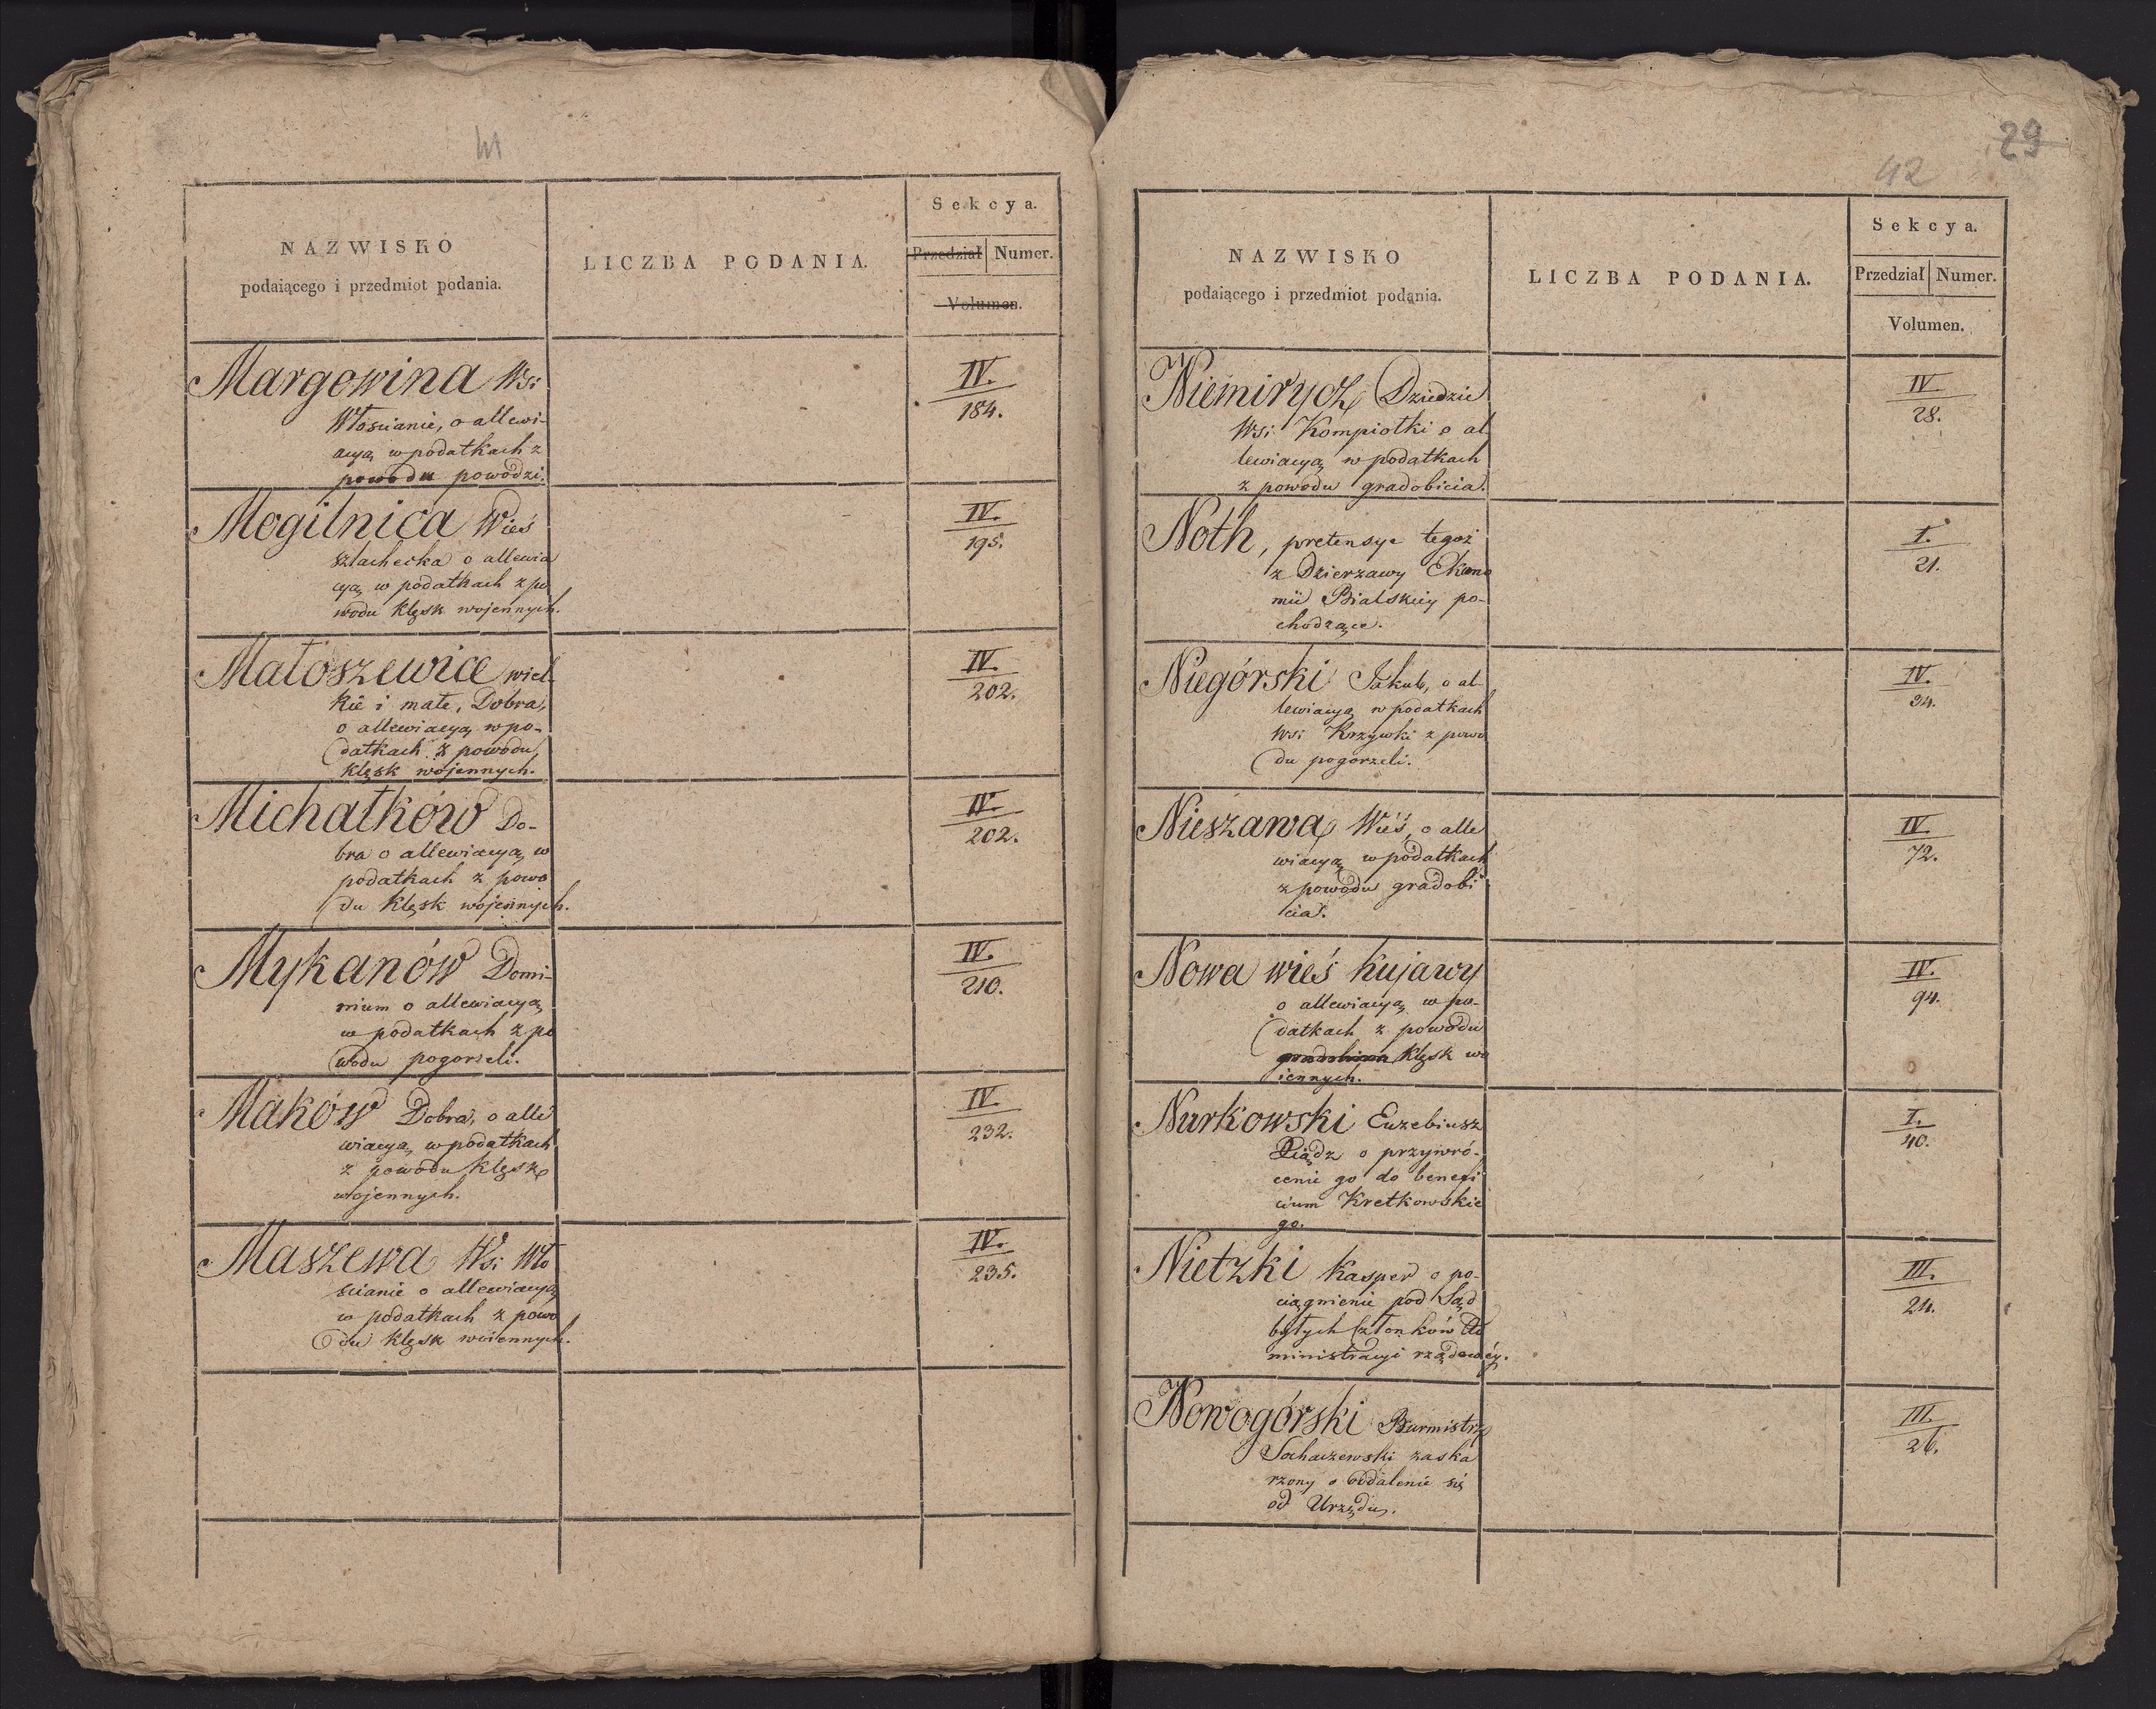 41
NAZWISKO
podaiącego i przedmiot podania.
LICZBA PODANIA.
Sekcya.
Przedział Numer.
Volumen.
Margowina Wsi
Włościanie, o allewi-
acyą w podatkach z
powodu powodzi.
IV.
184.
Mogilnica Wieś
szlachecka o allewia
cyą w podatkach z po
wodu klęsk wojennych.
IV.
195.
Małoszewice wiel-
kie i małe, Dobra,
o allewiacyą w po-
datkach z powodu
klęsk wojennych.
IV.
202.
Michałków Do-
bra o allewiacyą w
podatkach z powo
du klęsk wojennych.
IV.
202.
Mykanów Domi-
nium o allewiacyą
w podatkach z po
wodu pogorzeli.
IV.
210.
Maków Dobra, o alle
wiacyą w podatkach
z powodu klęsk
wojennych.
IV.
232.
Maszewa Wsi Wło
ścianie o allewiacyą
w podatkach z powo
du klęsk woiennych.
IV.
235.
29
42
NAZWISKO
podaiącego i przedmiot podania.
LICZBA PODANIA.
Sekcya.
Przedział Numer.
Volumen.
Niemirycz Dziedzic
Wsi Kompiotki o al-
lewiacyą w podatkach
z powodu gradobicia.
IV.
28.
Noth, pretensye tegoż
z Dzierzawy Ekono
mii Bialskiey po-
chodzące.
I.
21.
Niegórski Jakub, o al-
lewiacyą w podatkach
wsi Krzywki z powo
du pogorzeli.
IV.
34.
Nieszawa Wieś, o alle
wiacyą w podatkach
z powodu gradobi
cia.
IV.
72.
Nowa wieś Kujawy
o allewiacyą w po-
datkach z powodu
gradobicia klęsk wo
iennych.
IV.
94.
Nurkowski Euzebiusz
Xiądz o przywró-
cenie go do benefi
cium Kretkowskie
go.
I.
40.
Nietzki Kasper o po-
ciągnienie pod Sąd
byłych Członków Ad
ministracyi rządowéy.
III.
24.
Nowogórski Burmistrz
Sochaczewski zaska
rzony o oddalenie się
od Urzędu.
III.
26.